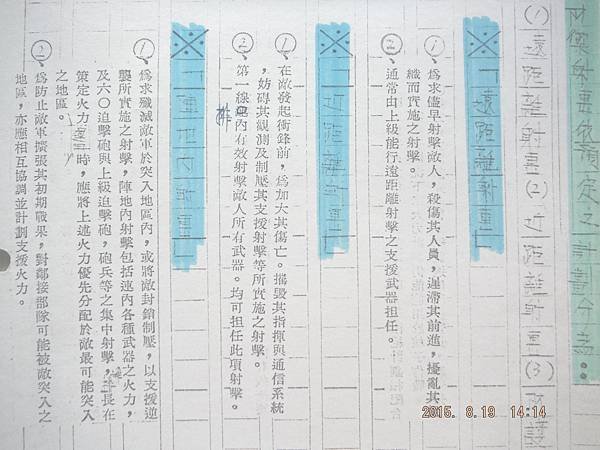 防禦射擊依預定之計劃分為：
(1)遠距離射擊(2)近距離射擊(3)
※「遠距離射擊」
①為求儘早射擊敵人，殺傷其人員，遲滯其前進，擾亂其
織而實施之射擊。
②通常由上級能行遠距離射擊之支援武器担任。
※「近距離射擊」
①在敵發起衝鋒前，為加大其傷亡。摧毀其指揮與通信系統
，妨碍其觀測及制壓其支援射擊等所實施之射擊。
②第一線排內有效射擊敵人所有武器。均可担任此項射擊。
※「陣地內射擊」
①為求殲滅敵軍於突入地區內，或將敵封鎖制壓，以支援逆
襲所實施之射擊，陣地內射擊包括連內各種武器之火力，
及六〇迫擊砲與上級迫擊砲，砲兵等之集中射擊，連長在
策定火力時，應將上述火力優先分配於敵最可能突入
之地區。
②為防止敵軍擴張其初期戰果，對鄰接部隊可能被敵突入之
地區，亦應相互協調並計劃支援火力。
2015. 8.19 14:14